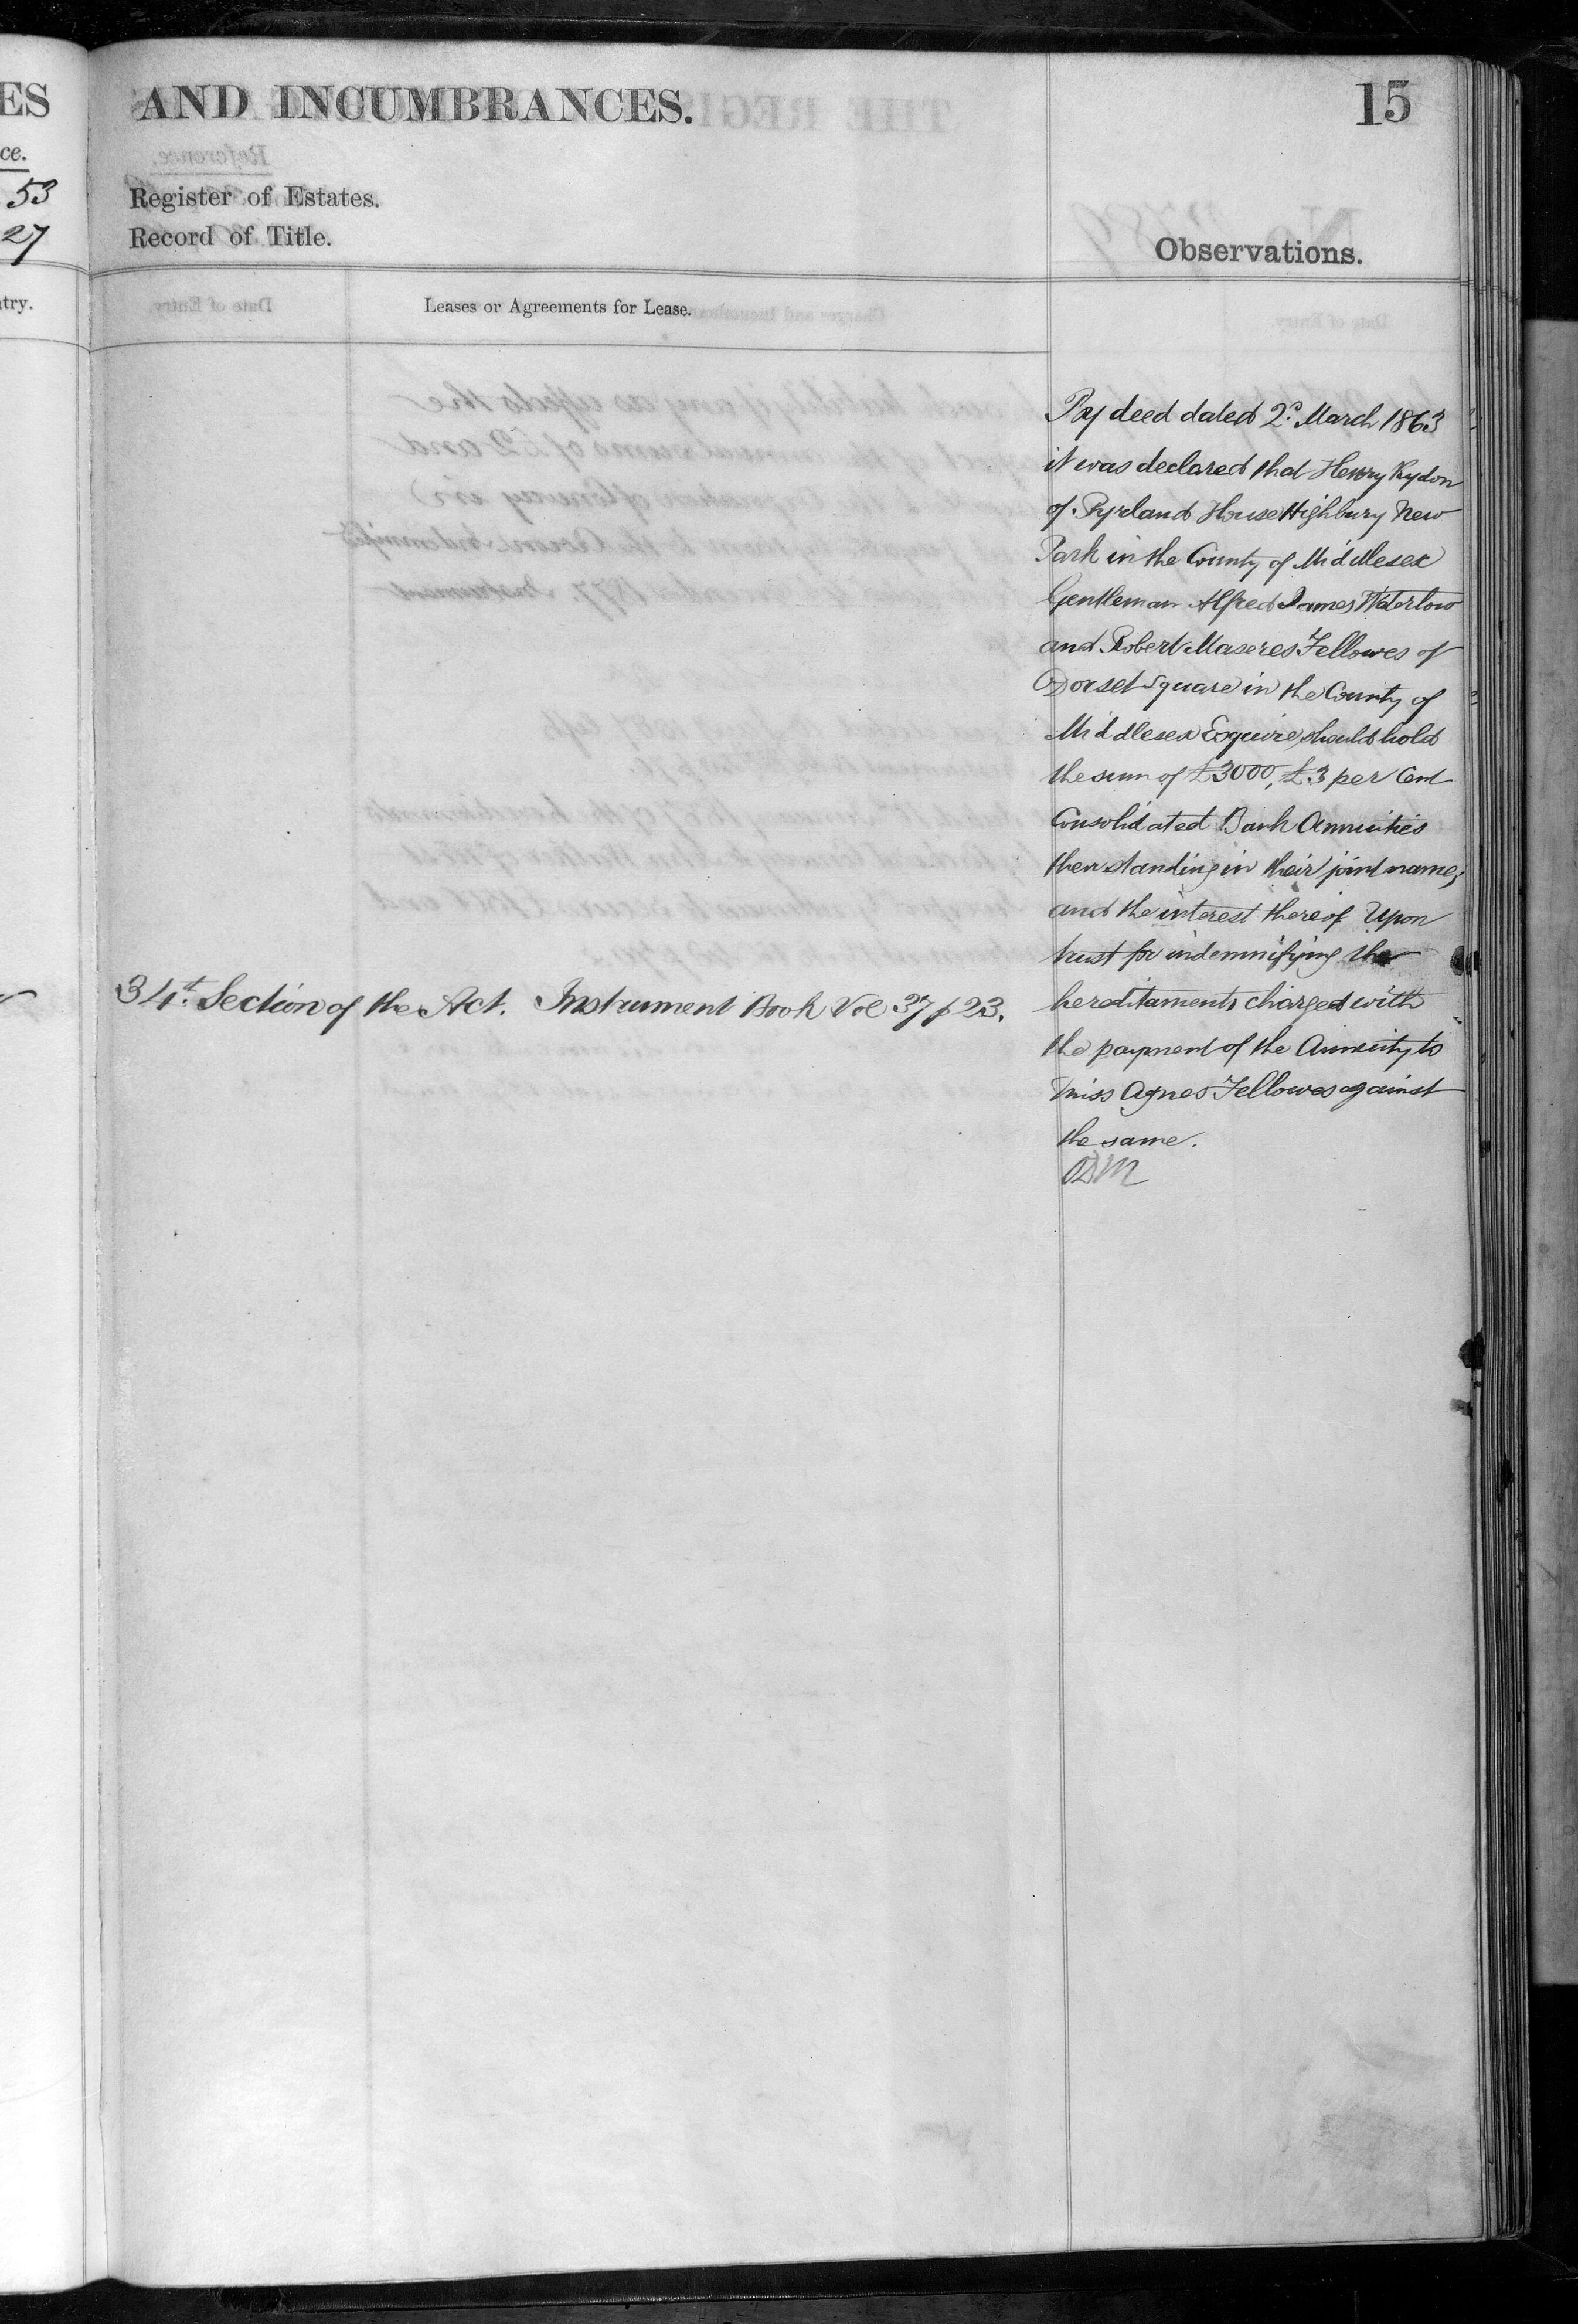 ES
ce.
53
27
try.
AND INCUMBRANCES.
15
Register of Estates.
Record of Title.
Observations.
Leases or Agreements for Lease.
34.t Section of the Act. Instrument Book Vol 37 p 23.
By deed dated 2d. March 1863
it was declared that Henry Rydon
of Pyrland House Highbury New
Park in the County of Middlesex
Gentleman Alfred James Waterlow
and Robert Maseres Fellowes of
Dorset Square in the County of
Middlesex Esquire should hold
the sum of £3000, £3 per Cent
Consolidated Bank Annuities
then standing in their joint names
and the interest thereof Upon
trust for indemnifying the
hereditaments charged with
the payment of the Annuity to
Miss Agnes Fellowes against
the same.